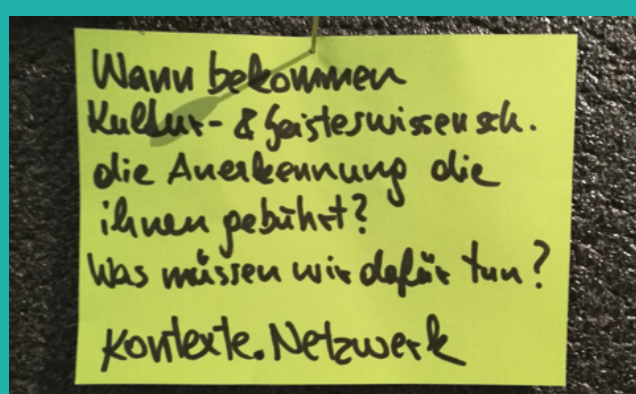 Wann bekommen
Kultur- & Geisteswissensch.
die Anerkennung die
ihnen gebührt?
Was müssen wir dafür tun?
Kontexte.Netzwerk